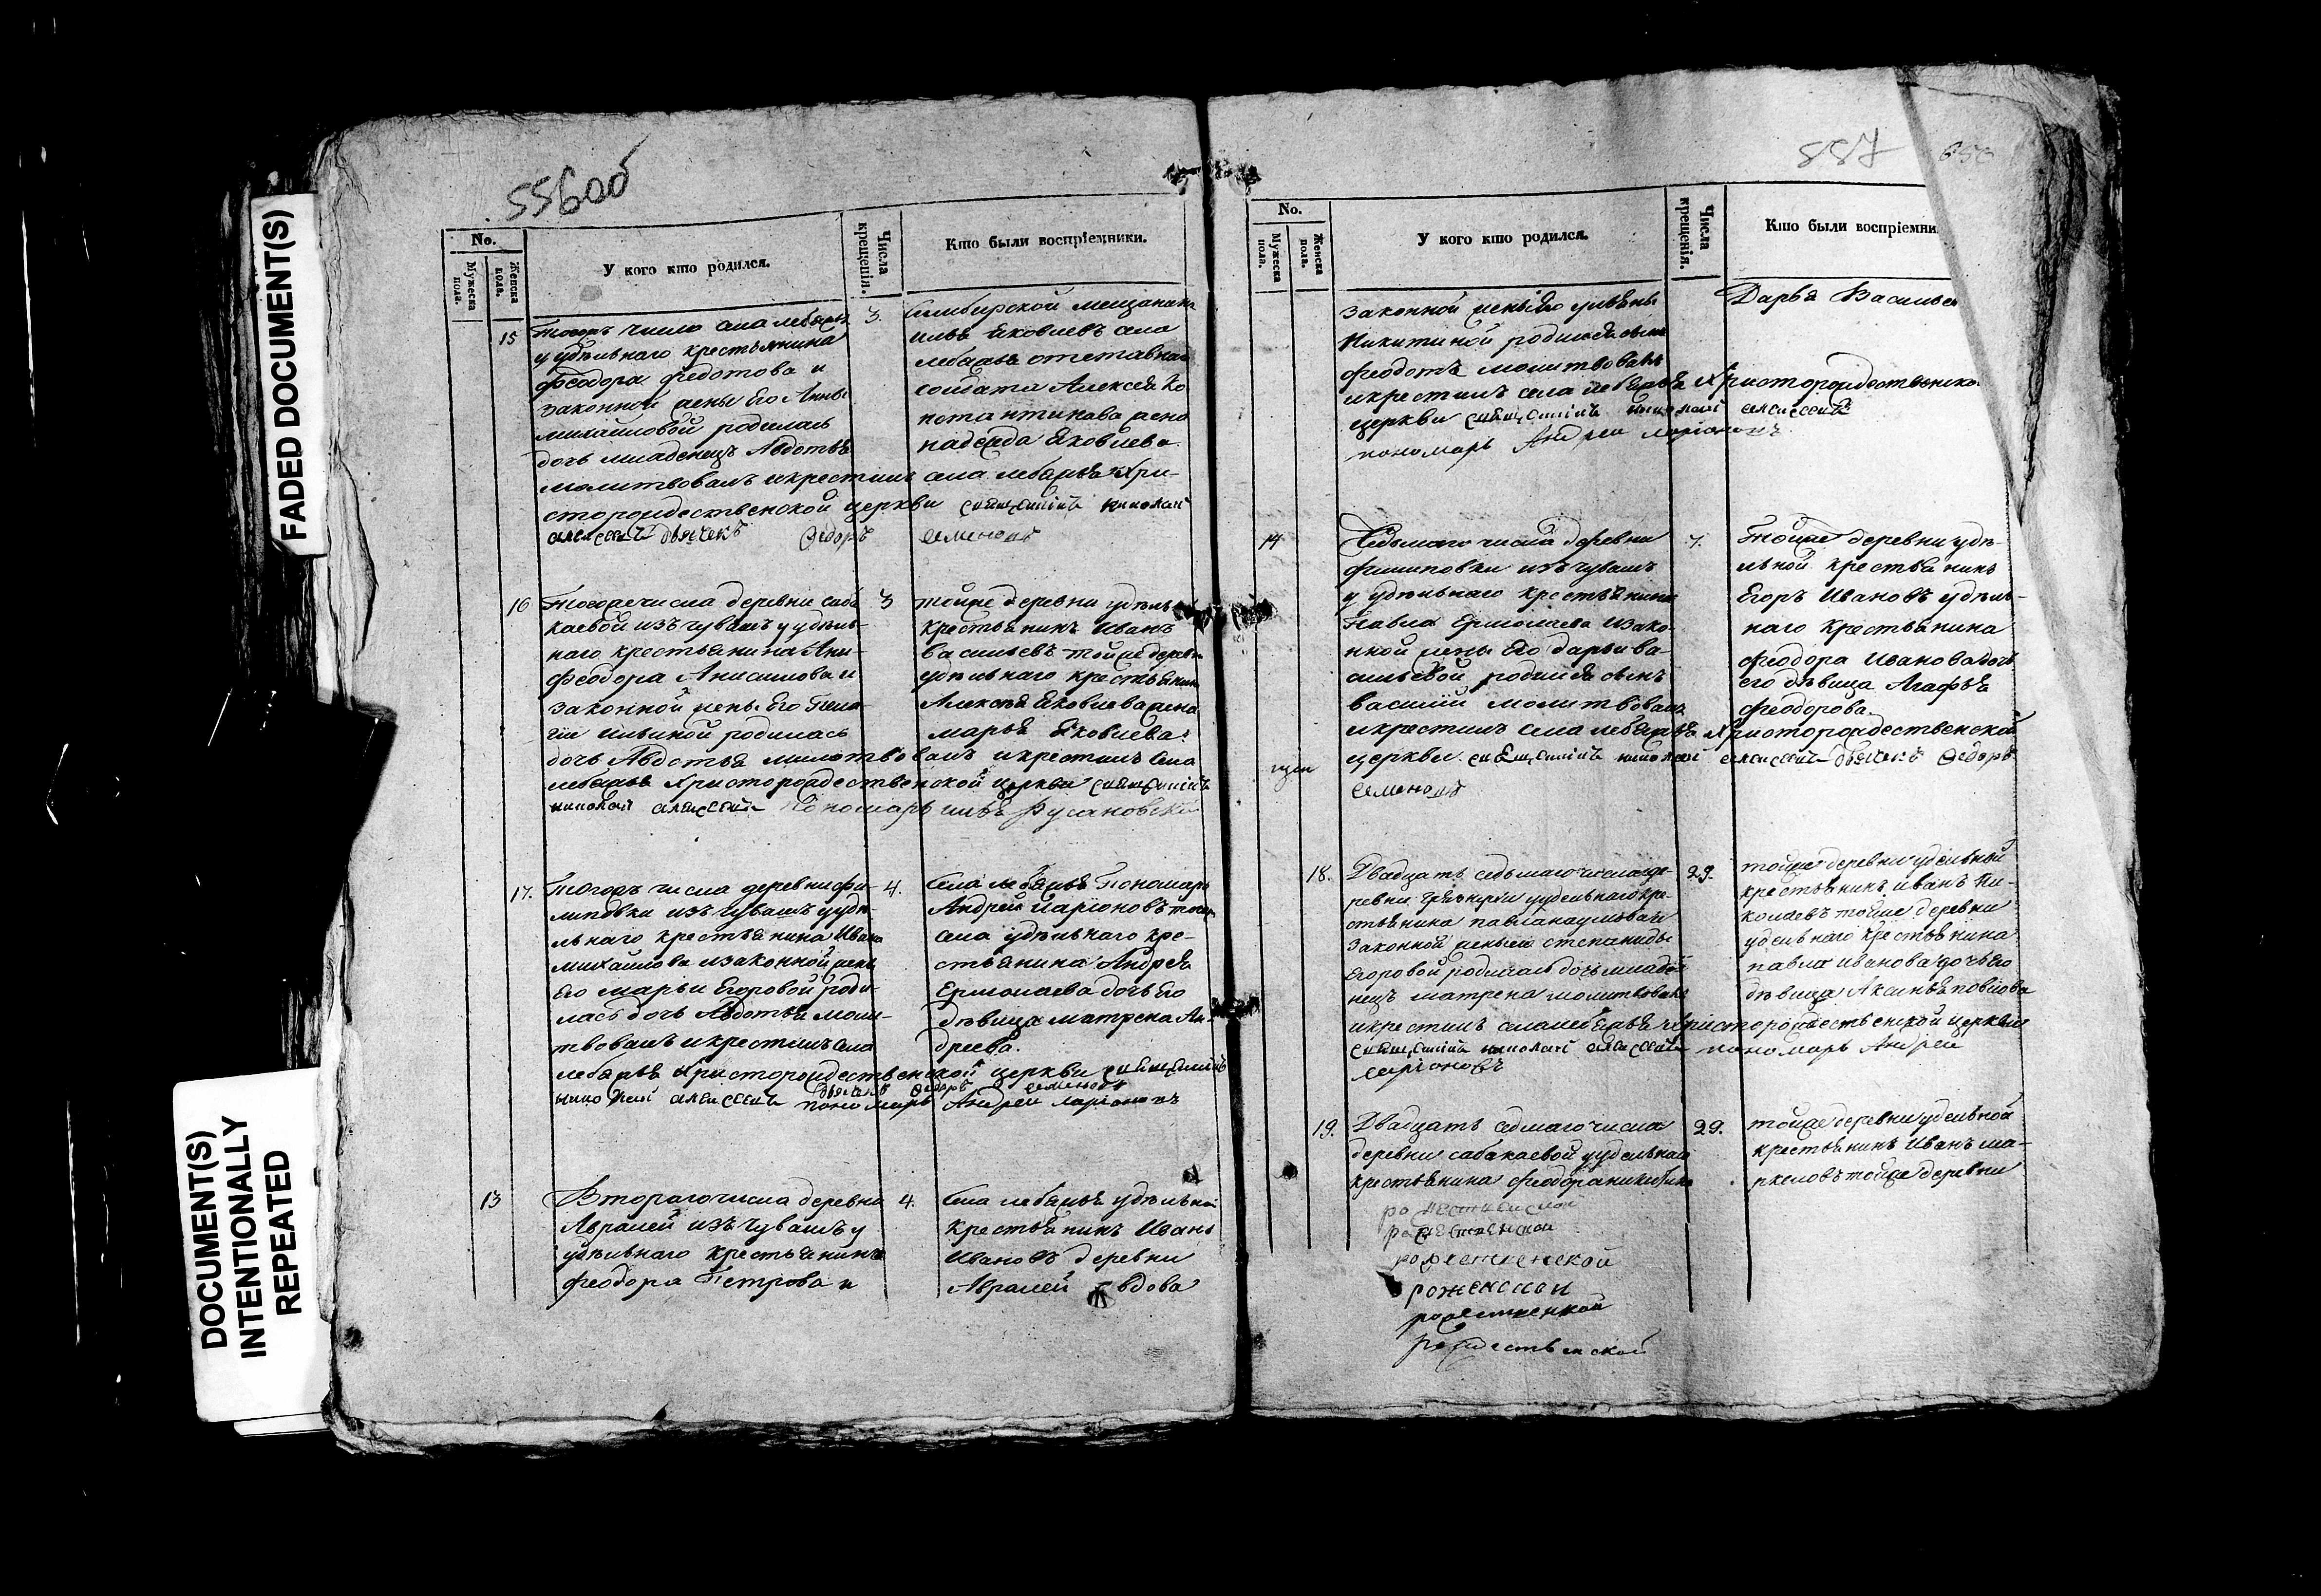 FADED DOCUMENT(S)
DOCUMENT(S)
INTENTIONALLY
REPEATED
556 об
No.
Мужеска пола.
Женска пола.
У кого кто родился.
Числа крещенія.
Кто были воспріемники.
15
Тогожъ число села лебяжья
у удѣльнаго крестьянина
Феодора Федотова и
законной жены Его Анны
михайловой родилась
дочь младенецъ Авдотья
молитвовалъ и крестилъ села лебяжья Хри-
сторождественской церкви священникъ николай
алексеевъ дьячекъ Федоръ семеновъ
3.
Симбирской мещанинъ
илья Яковлевъ села
лебяжья отставнаго
солдата Алексея Ко
нстантинова жена
надежда Яковлева
16
Тогоже числа деревни саба
каевой изъ чувашъ у удѣль-
наго крестьянина
Феодора Анисимова и
законной жены Его Пела-
геи ильиной родилась
дочь Авдотья молитвовалъ и крестилъ села
лебяжья Христорождественской церкви священникъ
николай алексеевъ Пономарь илья Русановскій
3
тойже деревни удѣльной
крестьянинъ Иванъ
васильевъ тойже деревни
удѣльнаго крестьянина
Алексѣя Яковлева жена
марья Яковлева.
17.
Тогожъ числа деревни фи-
липовки изъ чувашъ у удѣ-
льнаго крестьянина Ивана
михайлова и законной жены
Его марьи Егоровой роди-
лась дочь Авдотья моли-
твовалъ и крестилъ села
лебяжья Христорождественской церкви священникъ
николай алексеевъ дьячекъ Федоръ семеновъ
пономарь Андреи ларіоновъ
4.
Села лебяжья Пономарь
Андрей Ларіоновъ тогоже
села удѣльнаго кре-
стьянина Андрея
Ермолаева дочь Его
дѣвица матрена Ан-
дреева.
13
Втораго числа деревни
Авралей изъ чувашъ у
удѣльнаго крестьянина
феодора Петрова и
4.
Села лебяжья удѣльной
крестьянинъ Иванъ
Ивановъ деревни
Авралей вдова
557
No.
Мужеска пола.
Женска пола.
У кого кто родился.
Числа крещенія.
Кто были воспріемни
законной жены Его ульяны
Никитиной родился сынъ
феодотъ молитвовалъ
и крестилъ села лебяжья Христорождественско
церкви священникъ николай алексеевъ
пономарь Андреи ларіоновъ
Дарья Василье
14
Седьмаго числа деревни
филиповки изъ чувашъ
у удѣльнаго крестьянина
Павла Ермолаева и зако-
нной жены Его дарьи ва-
сильевой родился сынъ
василій молитвовалъ
и крестилъ села лебяжья Христорождественской
церкви священникъ николай алексеевъ дьячекъ Федоръ
семеновъ
7.
Тойже деревни удѣ-
льной крестьянинъ
Егоръ Ивановъ удѣль-
наго крестьянина
феодора Иванова дочь
его дѣвица Агафья
феодорова.
18.
Двадцать седьмаго числа де-
ревни грязнухи у удельнаго кре-
стьянина павла наумова и
законной жены его степаниды
Егоровой родилась дочь младе-
нецъ матрена молитвовалъ
и крестилъ села лебяжья христорождественской церкви
священникъ николай алексеевъ пономарь Андреи
ларіоновъ
29.
тойже деревни удельной
крестьянинъ иванъ Ни-
колаевъ тойже деревни
удельнаго крестьянина
павла иванова дочь Его
дѣвица Аксинья повлова
19.
Двадцать седмаго числа
деревни сабакаевой у удельнаго
крестьянина феодора никитина
29.
тойже деревни удельной
крестьянинъ Иванъ ма-
ркеловъ тойже деревни
рожественской
роженской
рожественской
рождественской